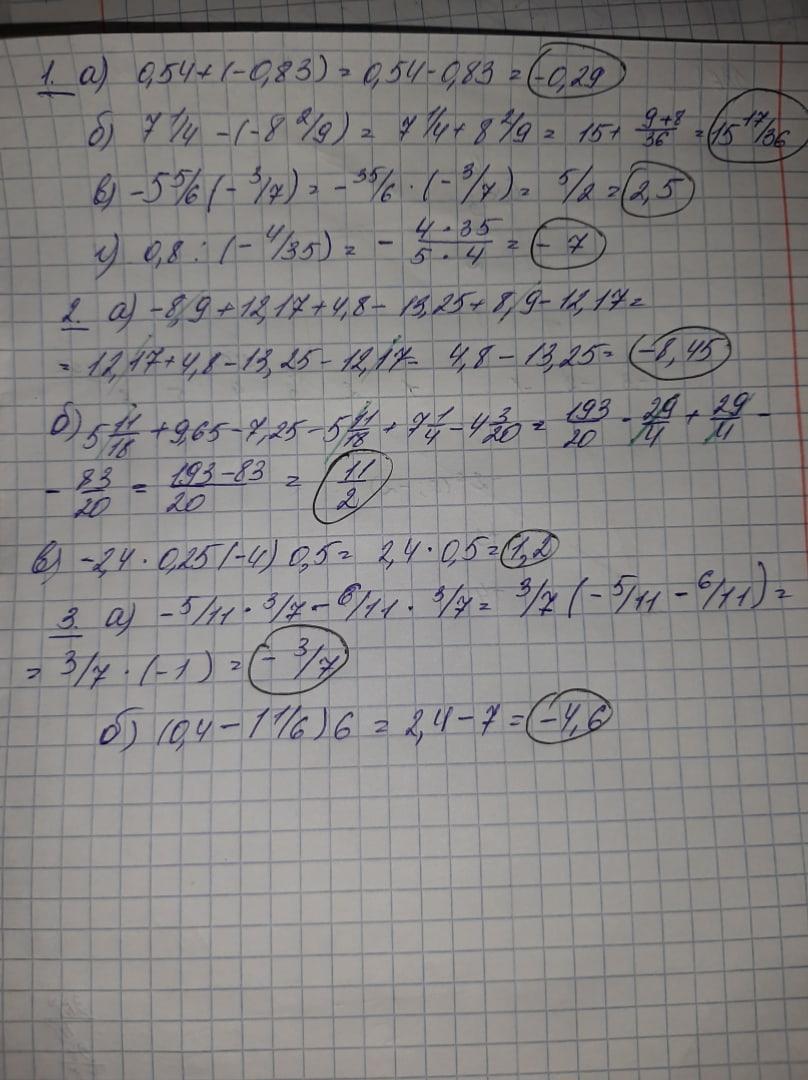 1. а) 0,54+(-0,83) = 0,54-0,83 = -0,29
б) 7 1/4 -(-8 2/9) = 7 1/4 + 8 2/9 = 15+ (9+8)/36 = 15 17/36
в) -5 5/6 (-3/7) = -35/6 · (-3/7) = 5/2 = 2,5
г) 0,8 : (-4/35) = - (4·35)/(5·4) = -7
2. а) -8,9+12,17+4,8-13,25+8,9-12,17=
= 12,17+4,8-13,25-12,17= 4,8-13,25= -8,45
б) 5 11/18 + 9,65-7,25-5 11/18 + 7 1/4 - 4 3/20 = 193/20 - 29/4 + 29/4 -
- 83/20 = (193-83)/20 = 11/2
в) -2,4 · 0,25(-4) 0,5= 2,4·0,5= 1,2
3. а) -5/11 · 3/7 - 6/11 · 3/7 = 3/7 (-5/11 - 6/11) =
= 3/7 · (-1) = -3/7
б) (0,4 - 1 1/6) 6 = 2,4-7 = -4,6